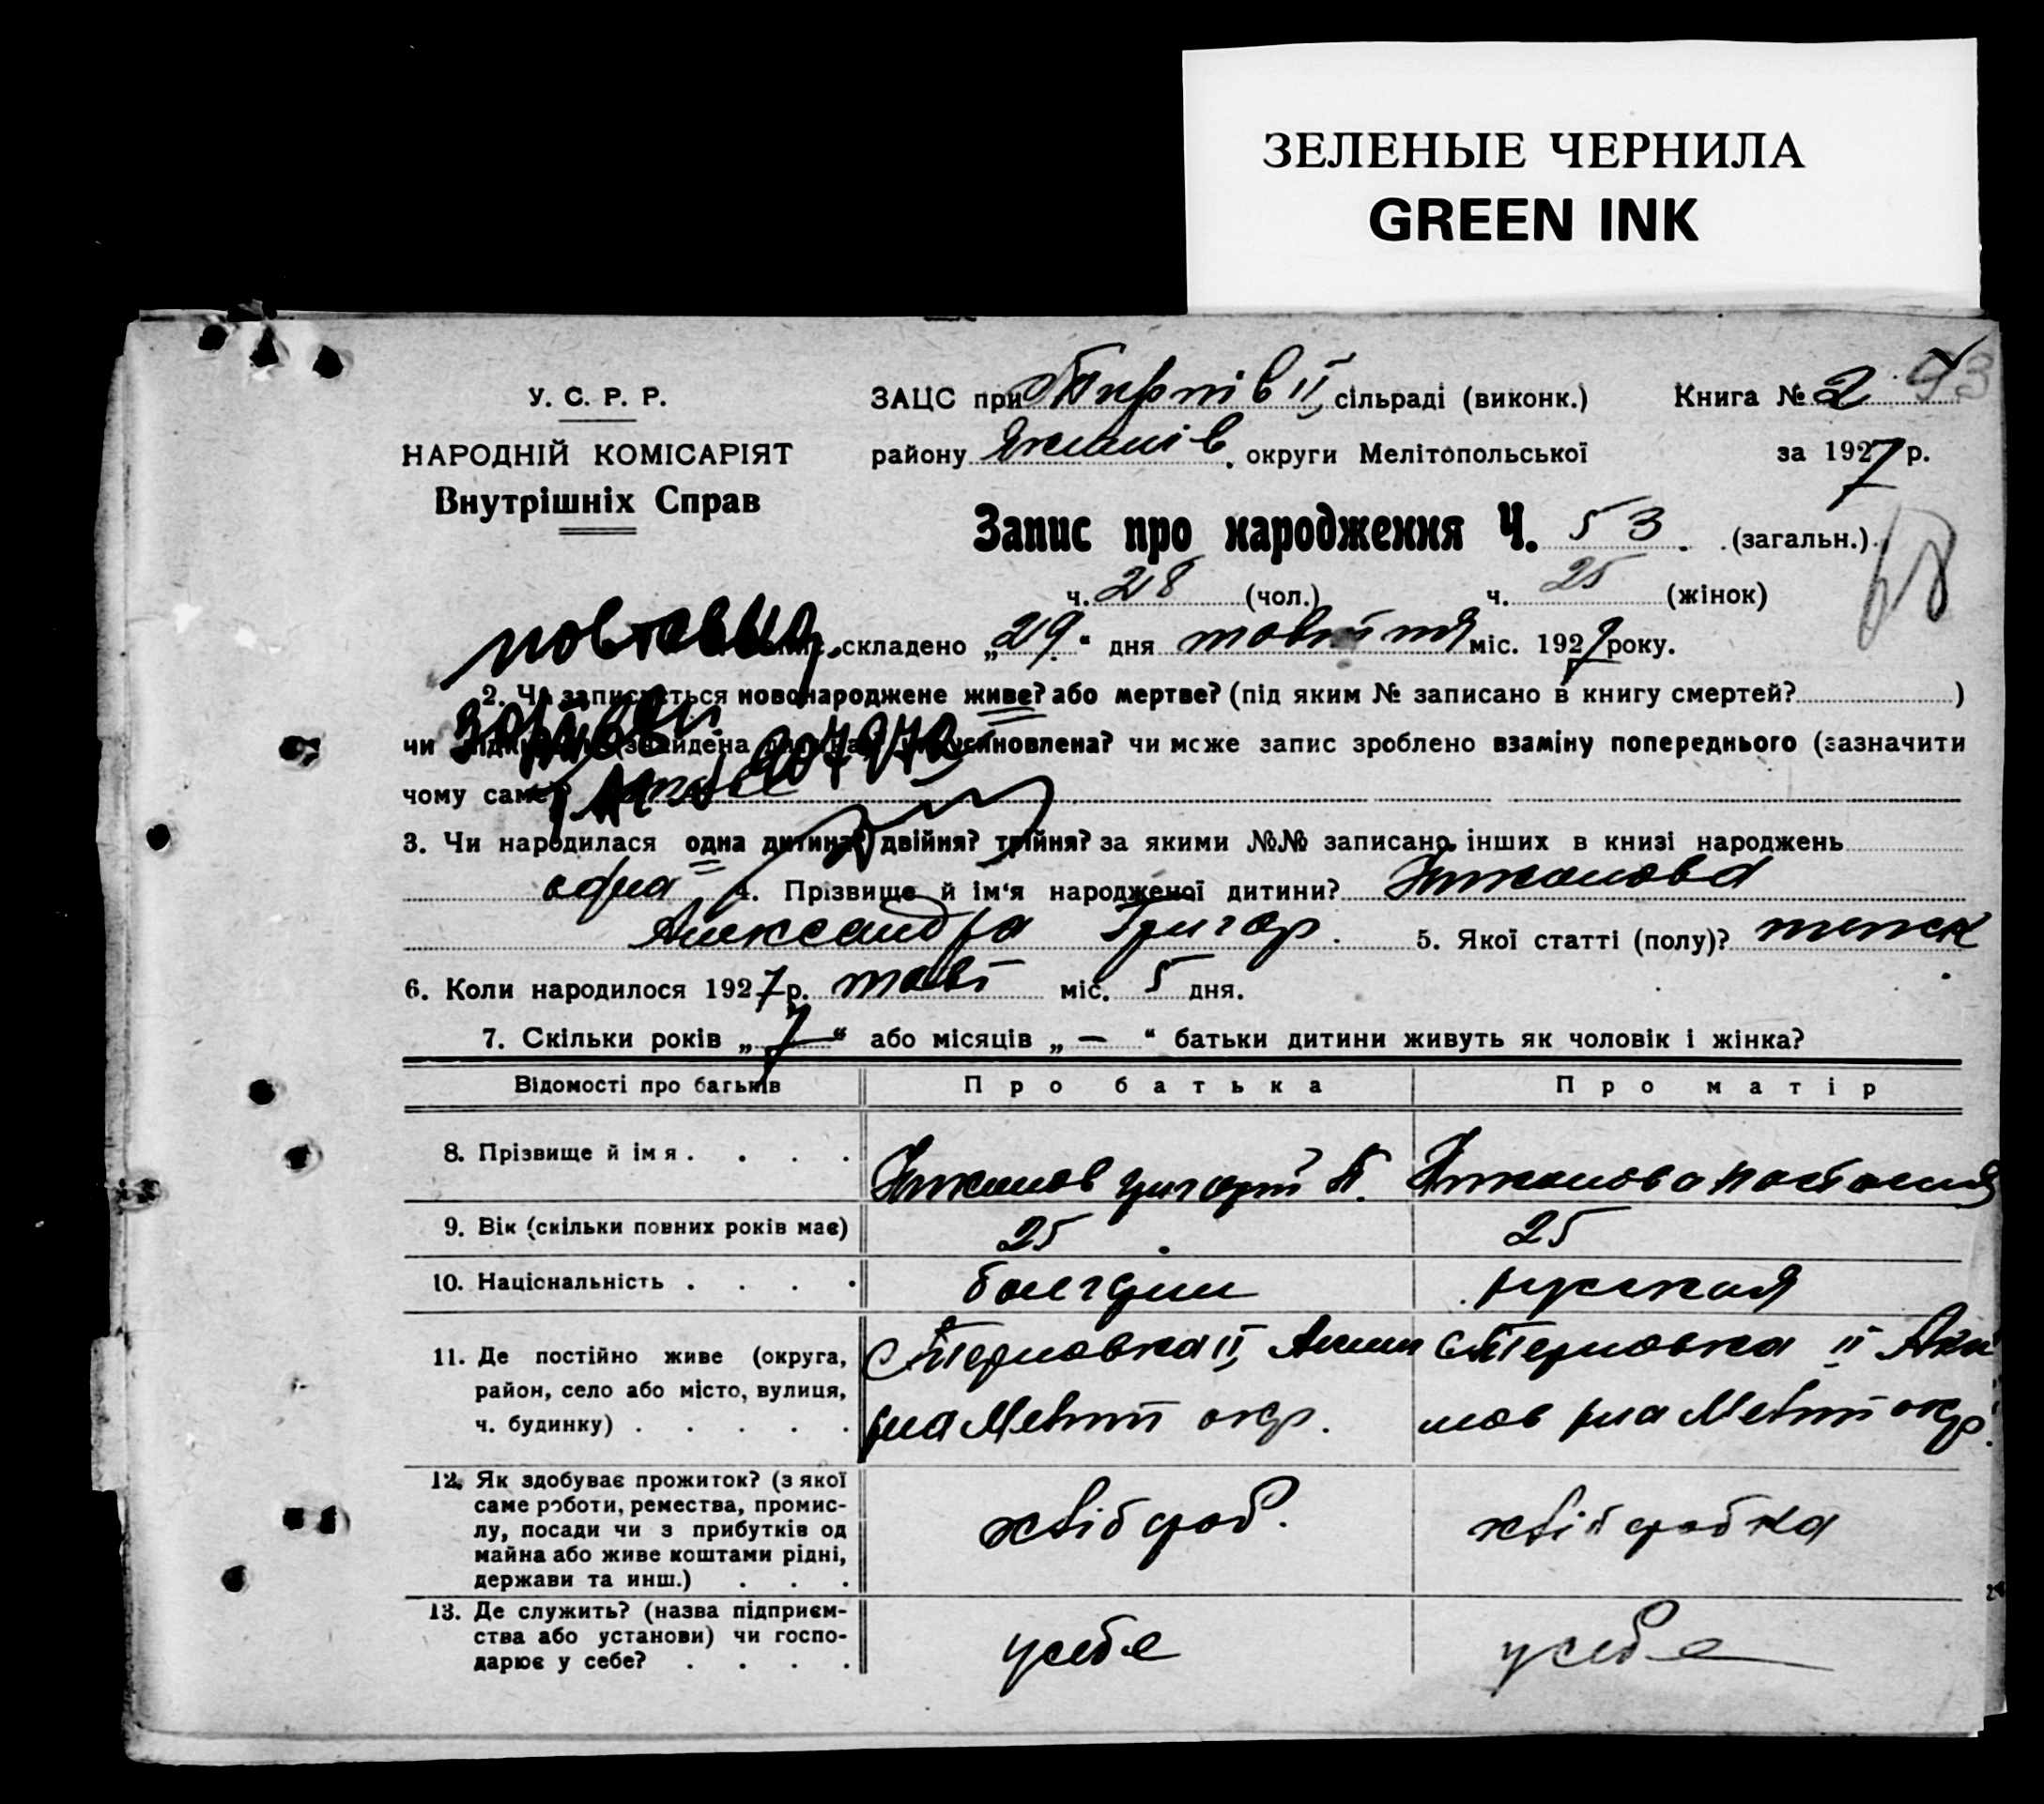 ЗЕЛЕНЫЕ ЧЕРНИЛА
GREEN INK
У. С. Р. Р.
НАРОДНІЙ КОМІСАРІЯТ
Внутрішніх Справ
ЗАЦС при II сільраді (виконк.)
Книга № 2
району округи Мелітопольської
за 1927 р.
Запис про народження Ч. 53 (загальн.)
ч. 28 (чол.) ч. 25 (жінок)
складено „29“ дня жовтня міс. 1927 року.
2. Чи записується новонароджене живе? або мертве? (під яким № записано в книгу смертей? )
чи знайдена усиновлена? чи може запис зроблено взаміну попереднього (зазначити
чому саме
3. Чи народилася одна дитина? двійня? трійня? за якими №№ записано інших в книзі народжень
одна 4. Прізвище й ім‘я народженої дитини?
Александра Григор. 5. Якої статті (полу)? женск
6. Коли народилося 1927 р. жовт міс. 5 дня.
7. Скільки років „7“ або місяців „—“ батьки дитини живуть як чоловік і жінка?
Відомості про батьків
Про батька
Про матір
8. Прізвище й ім я
9. Вік (скільки повних років має)
25
25
10. Національність
болгарин
русская
11. Де постійно живе (округа, район, село або місто, вулиця, ч. будинку)
Терновка II
р на Меліт окр.
Терновка II Аки
мов р на Меліт окр.
12. Як здобуває прожиток? (з якої
саме роботи, ремества, промис-
лу, посади чи з прибутків од
майна або живе коштами рідні,
держави та инш.)
хлібороб.
хліборобка
13. Де служить? (назва підприєм-
ства або установи) чи госпо-
дарює у себе?
у себе
у себе